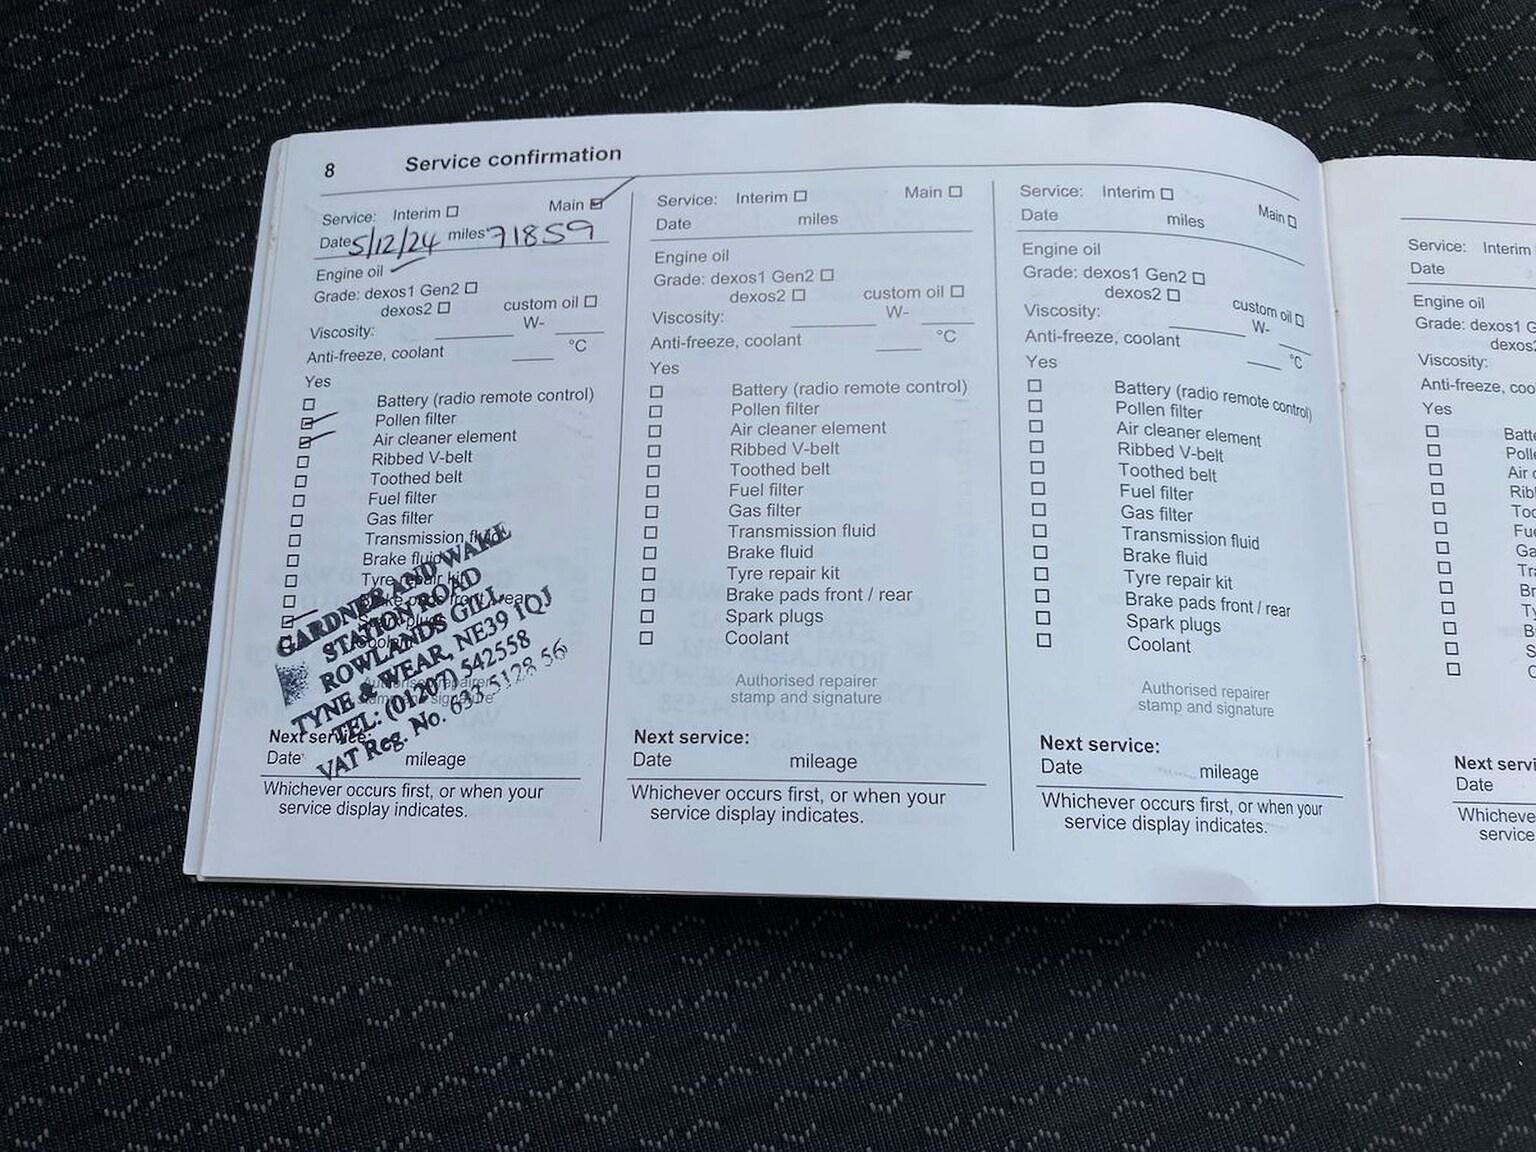 8 Service confirmation
Service: Interim ☐ Main ☑
Date 5/12/24 miles 71859
Engine oil ✓
Grade: dexos1 Gen2 ☐
dexos2 ☐ custom oil ☐
Viscosity: ____ W- ____
Anti-freeze, coolant ____ °C
Yes
☐ Battery (radio remote control)
☑ Pollen filter
☑ Air cleaner element
☐ Ribbed V-belt
☐ Toothed belt
☐ Fuel filter
☐ Gas filter
☐ Transmission fluid
☐ Brake fluid
☐ Tyre repair kit
☐ Brake pads front / rear
Spark plugs
Coolant
GARDNER AND WAKE
STATION ROAD
ROWLANDS GILL
TYNE & WEAR, NE39 1QJ
TEL: (01207) 542558
VAT Reg. No. 633 5128 56
Authorised repairer
stamp and signature
Next service:
Date mileage
Whichever occurs first, or when your
service display indicates.
Service: Interim ☐ Main ☐
Date miles
Engine oil
Grade: dexos1 Gen2 ☐
dexos2 ☐ custom oil ☐
Viscosity: ____ W- ____
Anti-freeze, coolant ____ °C
Yes
☐ Battery (radio remote control)
☐ Pollen filter
☐ Air cleaner element
☐ Ribbed V-belt
☐ Toothed belt
☐ Fuel filter
☐ Gas filter
☐ Transmission fluid
☐ Brake fluid
☐ Tyre repair kit
☐ Brake pads front / rear
☐ Spark plugs
☐ Coolant
Authorised repairer
stamp and signature
Next service:
Date mileage
Whichever occurs first, or when your
service display indicates.
Service: Interim ☐ Main ☐
Date miles
Engine oil
Grade: dexos1 Gen2 ☐
dexos2 ☐ custom oil ☐
Viscosity: ____ W- ____
Anti-freeze, coolant ____ °C
Yes
☐ Battery (radio remote control)
☐ Pollen filter
☐ Air cleaner element
☐ Ribbed V-belt
☐ Toothed belt
☐ Fuel filter
☐ Gas filter
☐ Transmission fluid
☐ Brake fluid
☐ Tyre repair kit
☐ Brake pads front / rear
☐ Spark plugs
☐ Coolant
Authorised repairer
stamp and signature
Next service:
Date mileage
Whichever occurs first, or when your
service display indicates.
Service: Interim
Date
Engine oil
Grade: dexos1 G
dexos2
Viscosity:
Anti-freeze, coo
Yes
☐ Batte
☐ Polle
☐ Air c
☐ Rib
☐ Too
☐ Fue
☐ Ga
☐ Tra
☐ Br
☐ Ty
☐ B
☐ S
☐ C
Next servi
Date
Whicheve
service